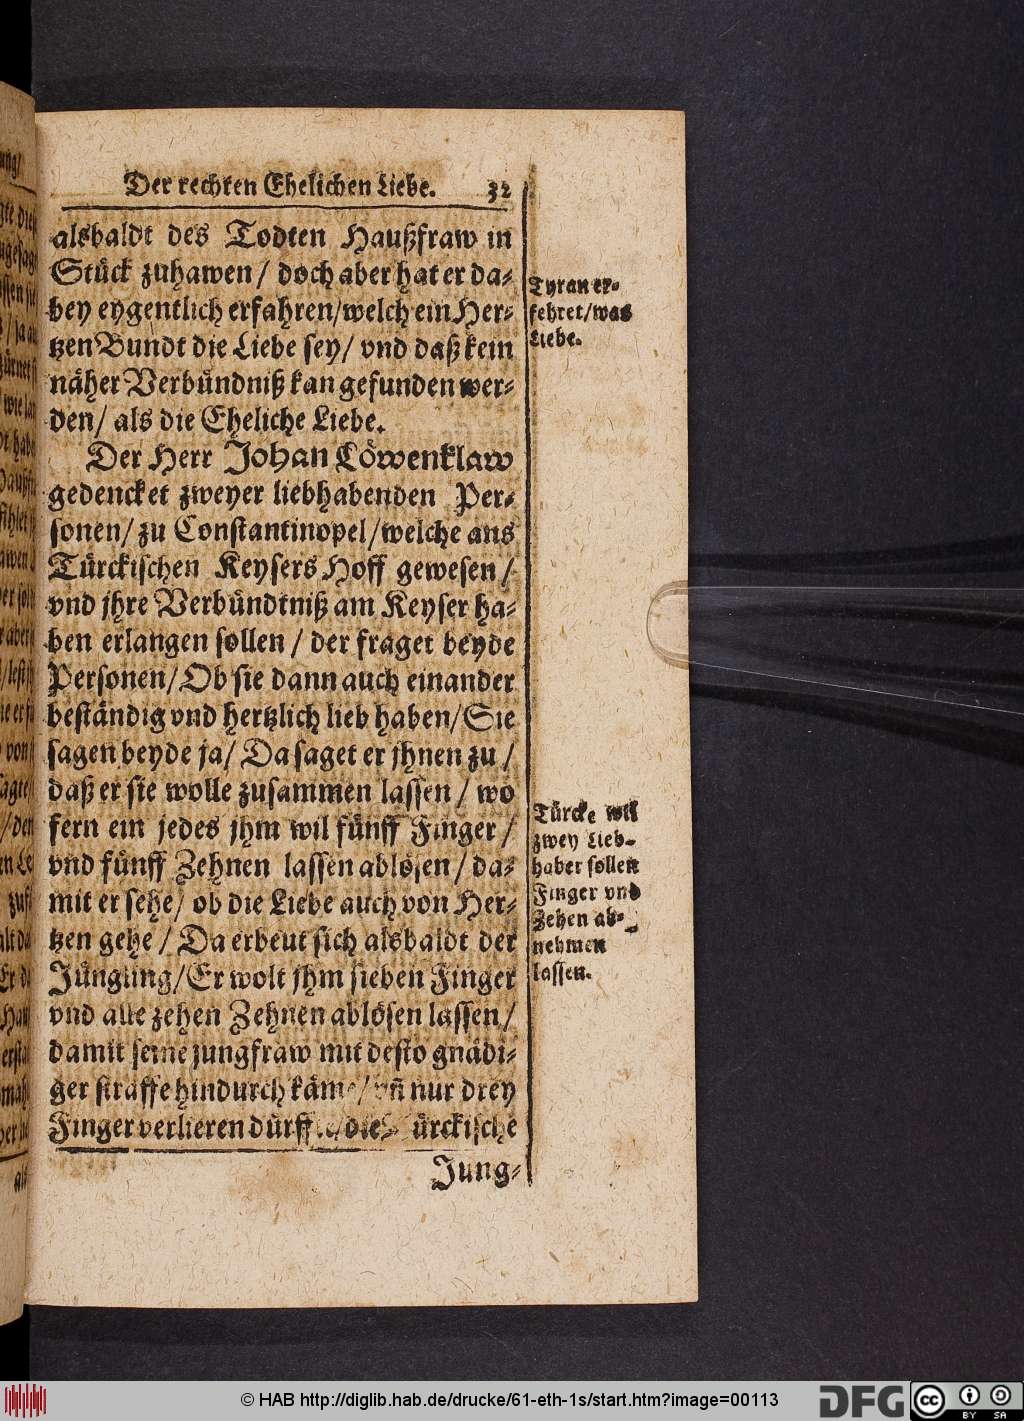 Der rechten Ehelichen Liebe. 32
alsbaldt des Todten Haußfraw in
Stück zuhawen / doch aber hat er da-
bey eygentlich erfahren/welch ein Her-
tzen Bundt die Liebe sey/ vnd daß kein
näher Verbündniß kan gefunden wer-
den/ als die Eheliche Liebe.
Der Herr Johan Löwenklaw
gedencket zweyer liebhabenden Per-
sonen/ zu Constantinopel/welche ans
Türckischen Keysers Hoff gewesen /
vnd jhre Verbündtniß am Keyser ha-
ben erlangen sollen / der fraget beyde
Personen/ Ob sie dann auch einander
beständig vnd hertzlich lieb haben/ Sie
sagen beyde ja/ Da saget er jhnen zu /
daß er sie wolle zusammen lassen / wo
fern ein jedes jhm wil fünff Finger /
vnd fünff Zehnen lassen ablösen / da-
mit er sehe/ ob die Liebe auch von Her-
tzen gehe / Da erbeut sich alsbaldt der
Jüngling/ Er wolt jhm sieben Finger
vnd alle zehen Zehnen ablösen lassen /
damit seine jungfraw mit desto gnädi-
ger straffe hindurch käme/ vñ nur drey
Finger verlieren / die ürckische
Jung-
Tyran er-
fehret/was
Liebe.
Türcke wil
zwey Lieb-
haber sollen
Finger vnd
Zehen ab-
nehmen
lassen.
© HAB http://diglib.hab.de/drucke/61-eth-1s/start.htm?image=00113
DFG
cc BY SA